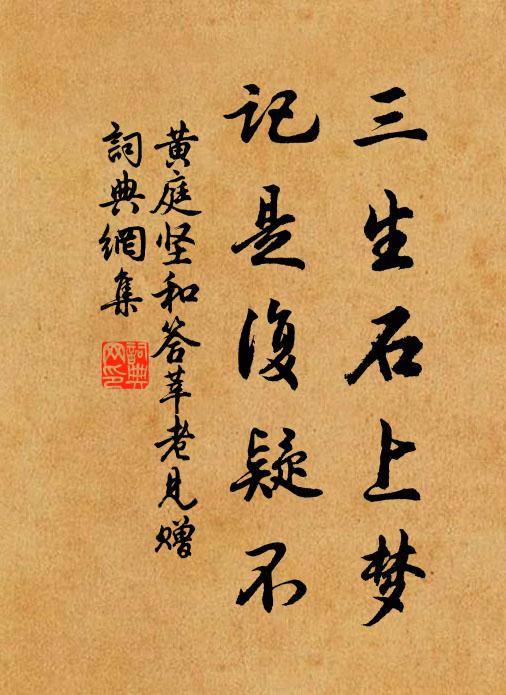 三生石上梦
记是復疑不
黄庭坚和答莘老见赠
詞典網集
詞典
网印